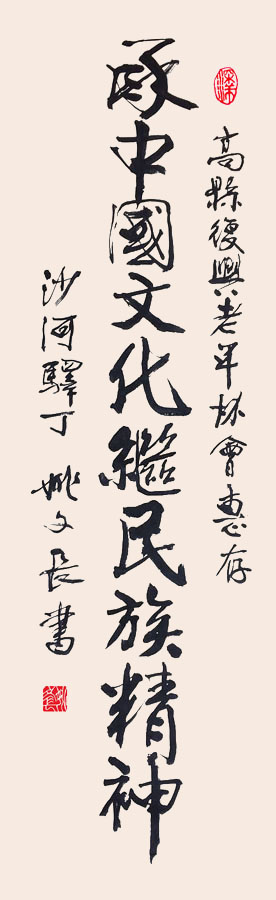 高縣復興老年體協會惠存
承中國文化繼民族精神
沙河驛丁 姚文長書